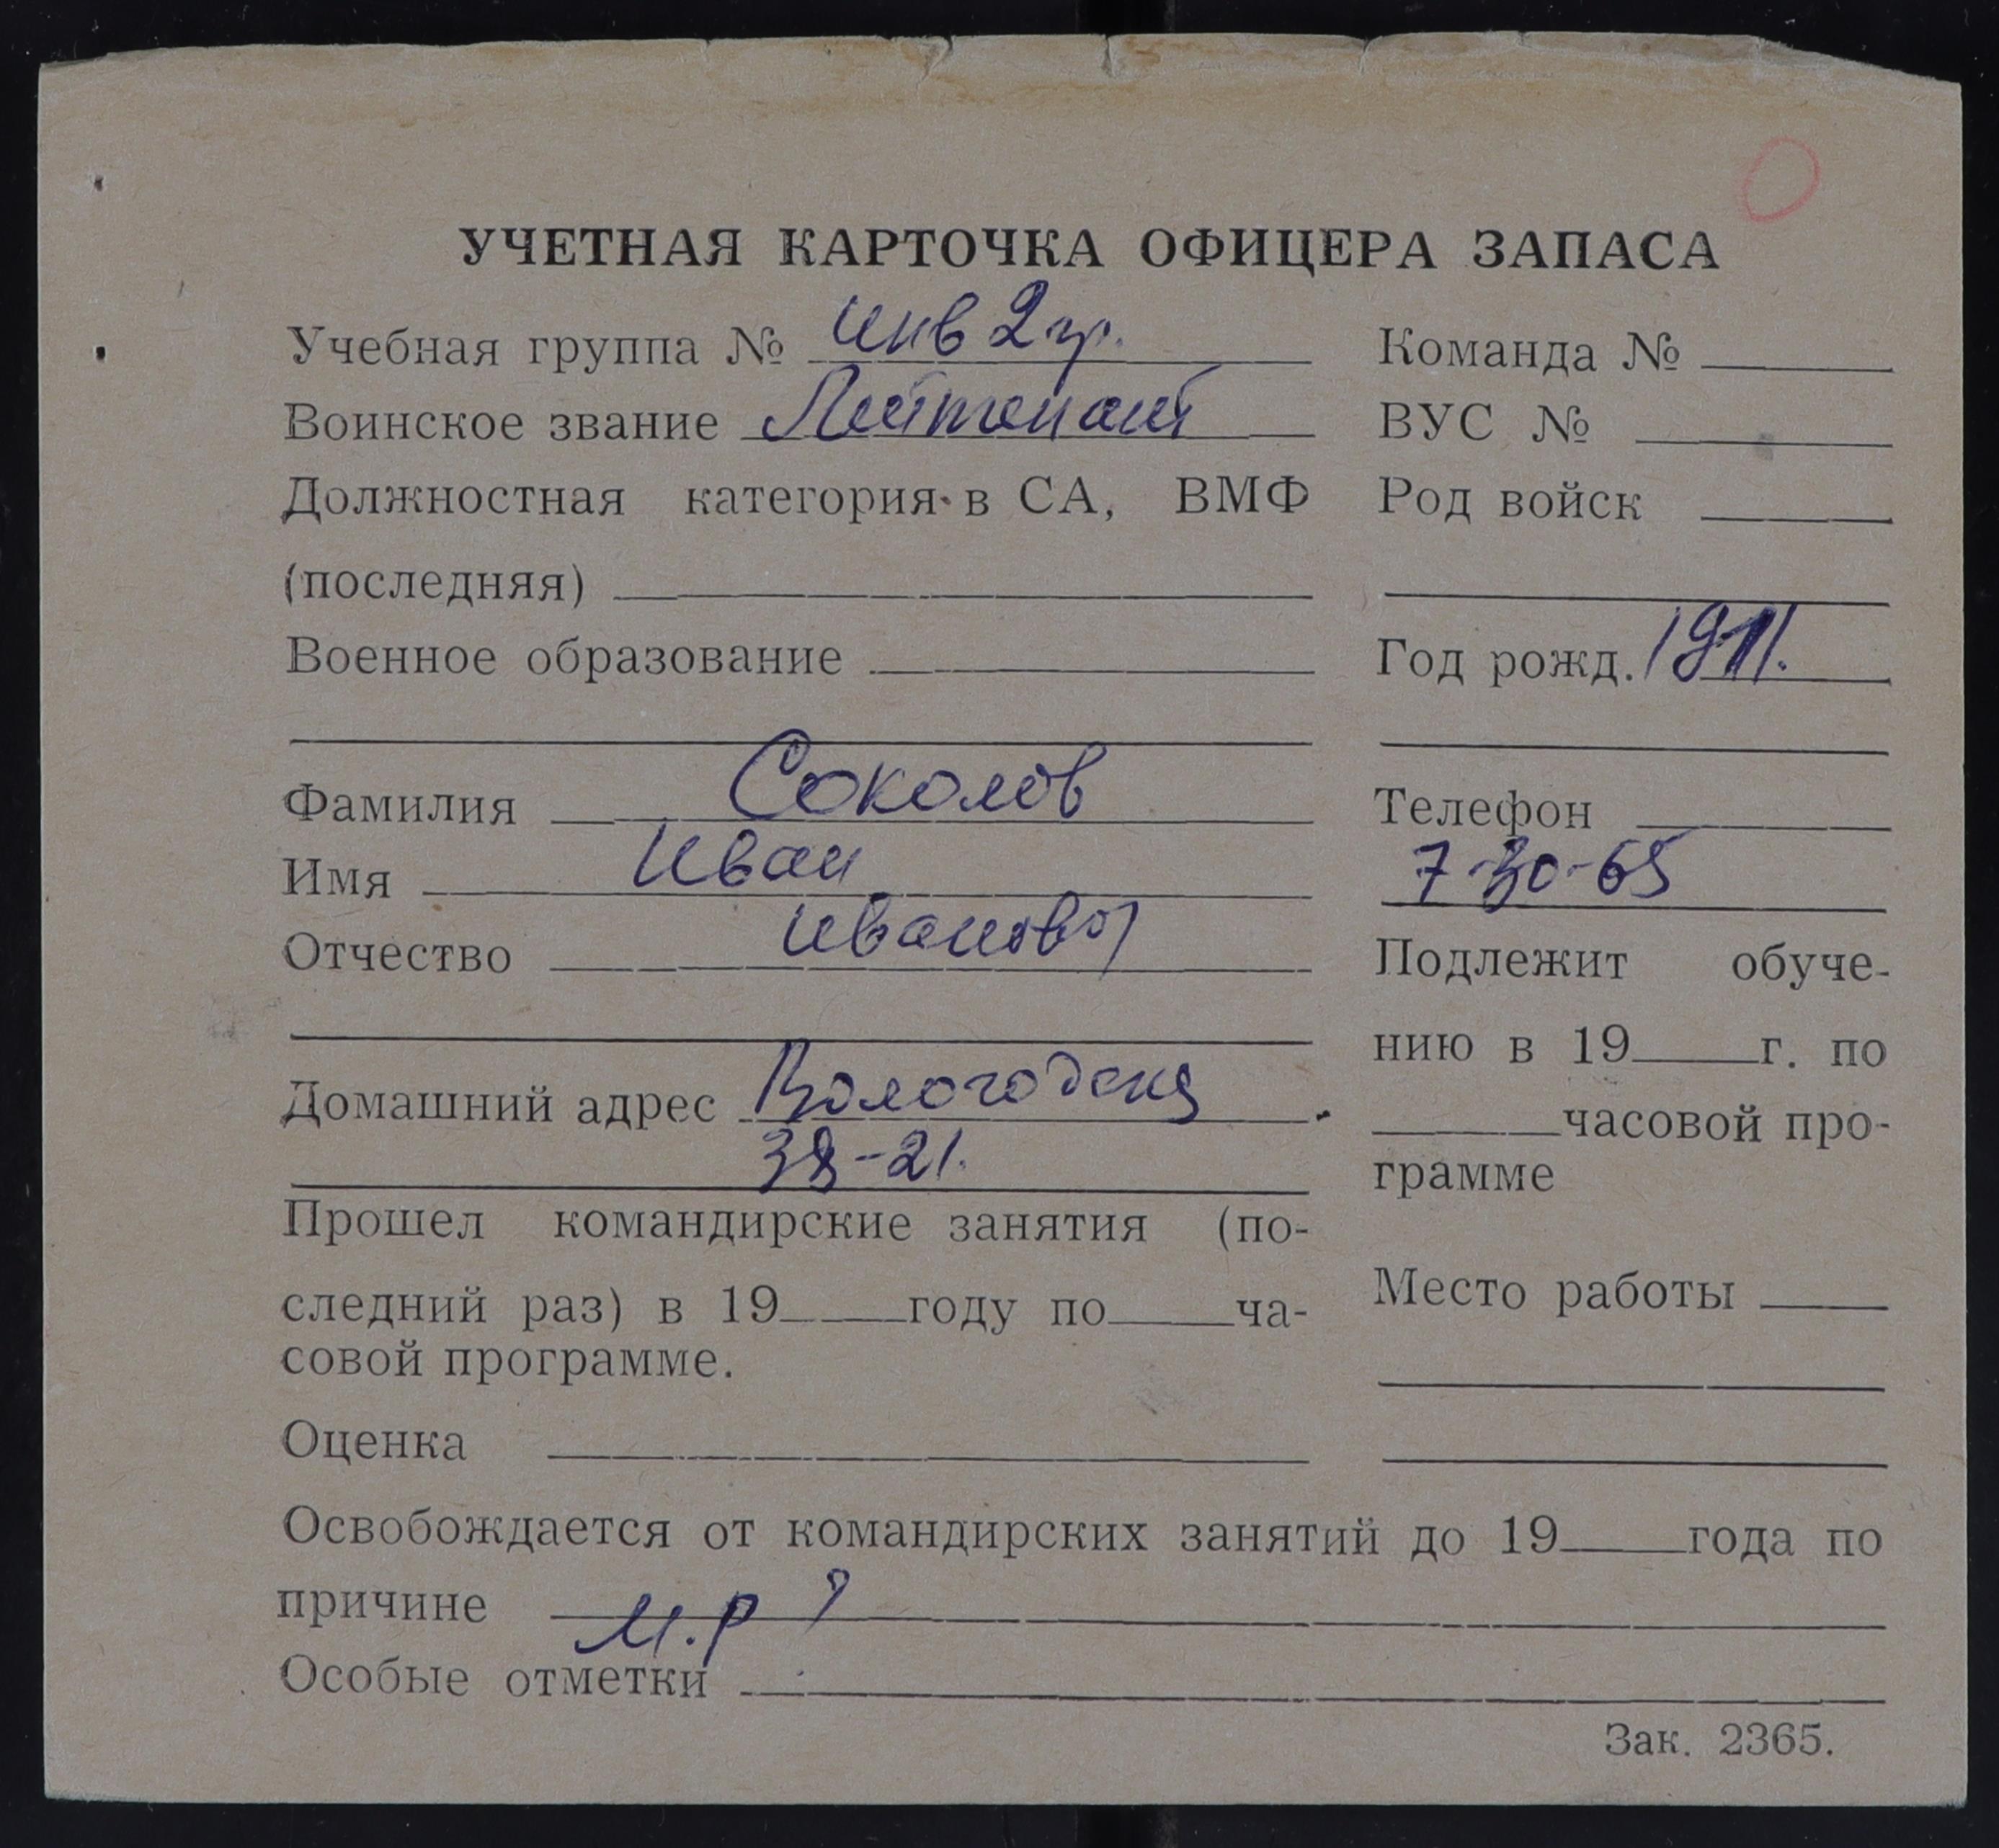 УЧЕТНАЯ КАРТОЧКА ОФИЦЕРА ЗАПАСА
Учебная группа № инв 2 гр.
Воинское звание Лейтенант
Должностная категория в СА, ВМФ
(последняя)
Военное образование
Фамилия Соколов
Имя Иван
Отчество Иванович
Домашний адрес Вологодская
38-21.
Прошел командирские занятия (по-
следний раз) в 19 году по ча-
совой программе.
Оценка
Команда №
ВУС №
Род войск
Год рожд. 1911.
Телефон
7-30-65
Подлежит обуче-
нию в 19 г. по
часовой про-
грамме
Место работы
Освобождается от командирских занятий до 19 года по
причине
Особые отметки
Зак. 2365.